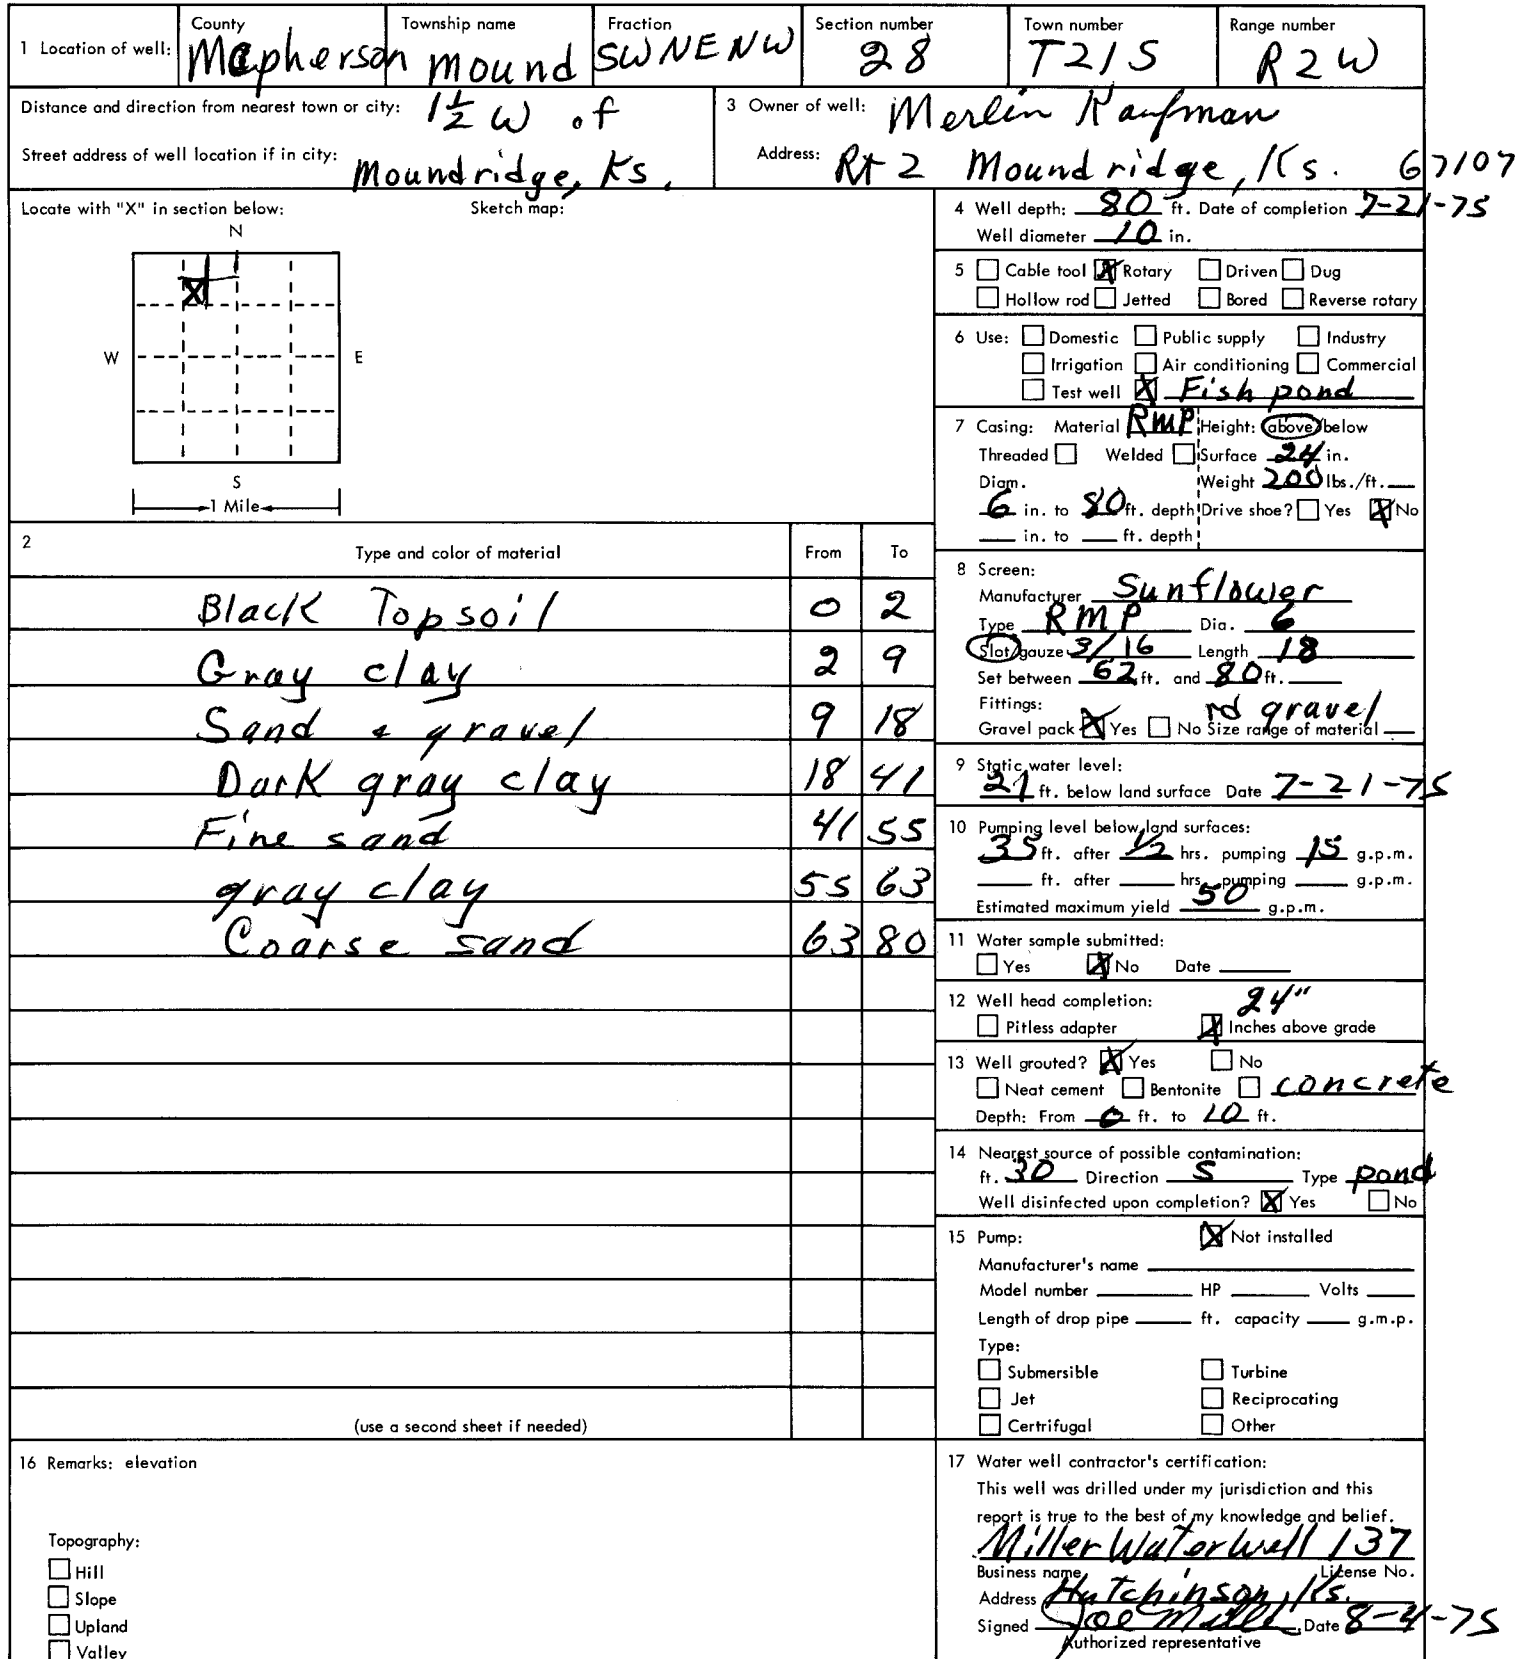 1 Location of well: County Mcpherson Township name Mound Fraction SWNENW Section number 28 Town number T21S Range number R2W
Distance and direction from nearest town or city: 1½ W of
Street address of well location if in city: Moundridge, Ks,
3 Owner of well: Merlin Kaufman
Address: Rt 2 Moundridge, Ks. 67107
Locate with "X" in section below: Sketch map:
N
X
W E
S
1 Mile
2 Type and color of material From To
Black Topsoil 0 2
Gray clay 2 9
Sand & gravel 9 18
Dark gray clay 18 41
Fine sand 41 55
gray clay 55 63
Coarse sand 63 80
(use a second sheet if needed)
4 Well depth: 80 ft. Date of completion 7-21-75
Well diameter 10 in.
5 Cable tool X Rotary Driven Dug
Hollow rod Jetted Bored Reverse rotary
6 Use: Domestic Public supply Industry
Irrigation Air conditioning Commercial
Test well X Fish pond
7 Casing: Material RMP Height: above/below
Threaded Welded Surface 24 in.
Diam. Weight 200 lbs./ft.
6 in. to 80 ft. depth Drive shoe? Yes X No
in. to ft. depth
8 Screen:
Manufacturer Sunflower
Type RMP Dia. 6
Slot/gauze 3/16 Length 18
Set between 62 ft. and 80 ft.
Fittings: rd gravel
Gravel pack X Yes No Size range of material
9 Static water level:
21 ft. below land surface Date 7-21-75
10 Pumping level below land surfaces:
35 ft. after 1/2 hrs. pumping 15 g.p.m.
ft. after hrs. pumping g.p.m.
Estimated maximum yield 50 g.p.m.
11 Water sample submitted:
Yes X No Date
12 Well head completion: 24"
Pitless adapter X Inches above grade
13 Well grouted? X Yes No
Neat cement Bentonite concrete
Depth: From 0 ft. to 10 ft.
14 Nearest source of possible contamination:
ft. 30 Direction S Type pond
Well disinfected upon completion? X Yes No
15 Pump: X Not installed
Manufacturer's name
Model number HP Volts
Length of drop pipe ft. capacity g.m.p.
Type:
Submersible Turbine
Jet Reciprocating
Certrifugal Other
16 Remarks: elevation
Topography:
Hill
Slope
Upland
Valley
17 Water well contractor's certification:
This well was drilled under my jurisdiction and this
report is true to the best of my knowledge and belief.
Miller Waterwell 137
Business name License No.
Address Hutchinson, Ks.
Signed Joe Miller Date 8-4-75
Authorized representative